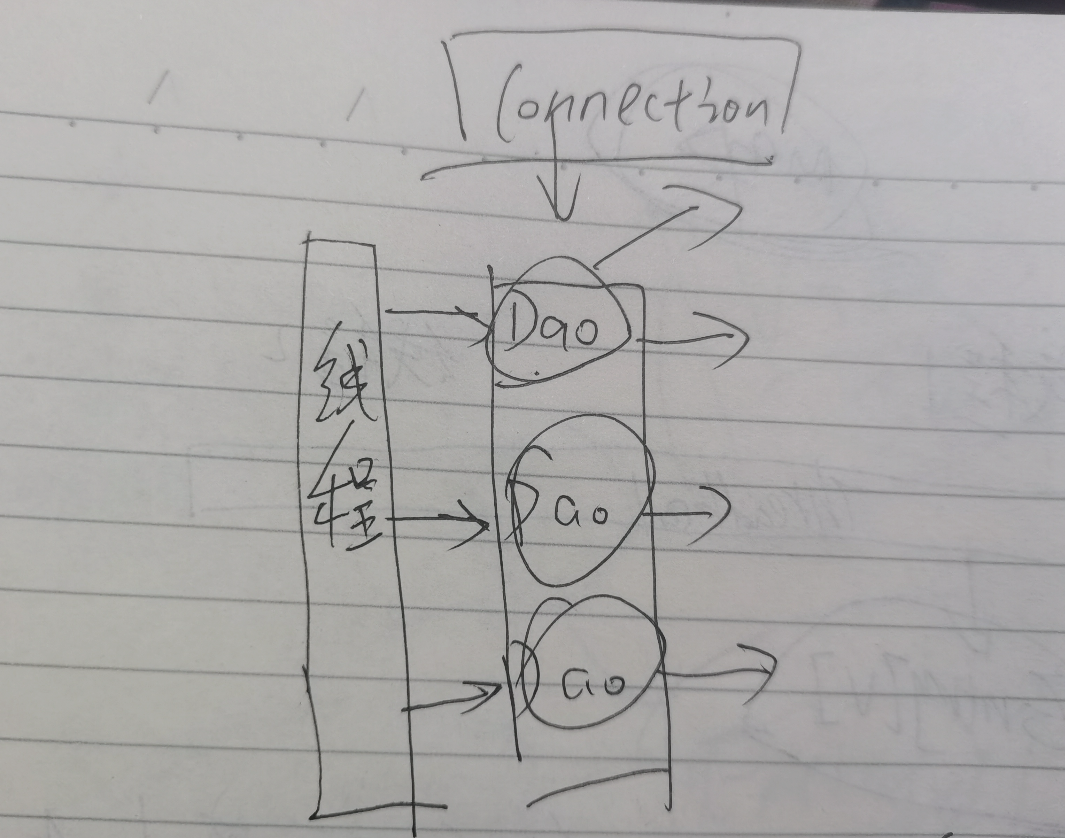 Connection
Dao
线程
Dao
Dao